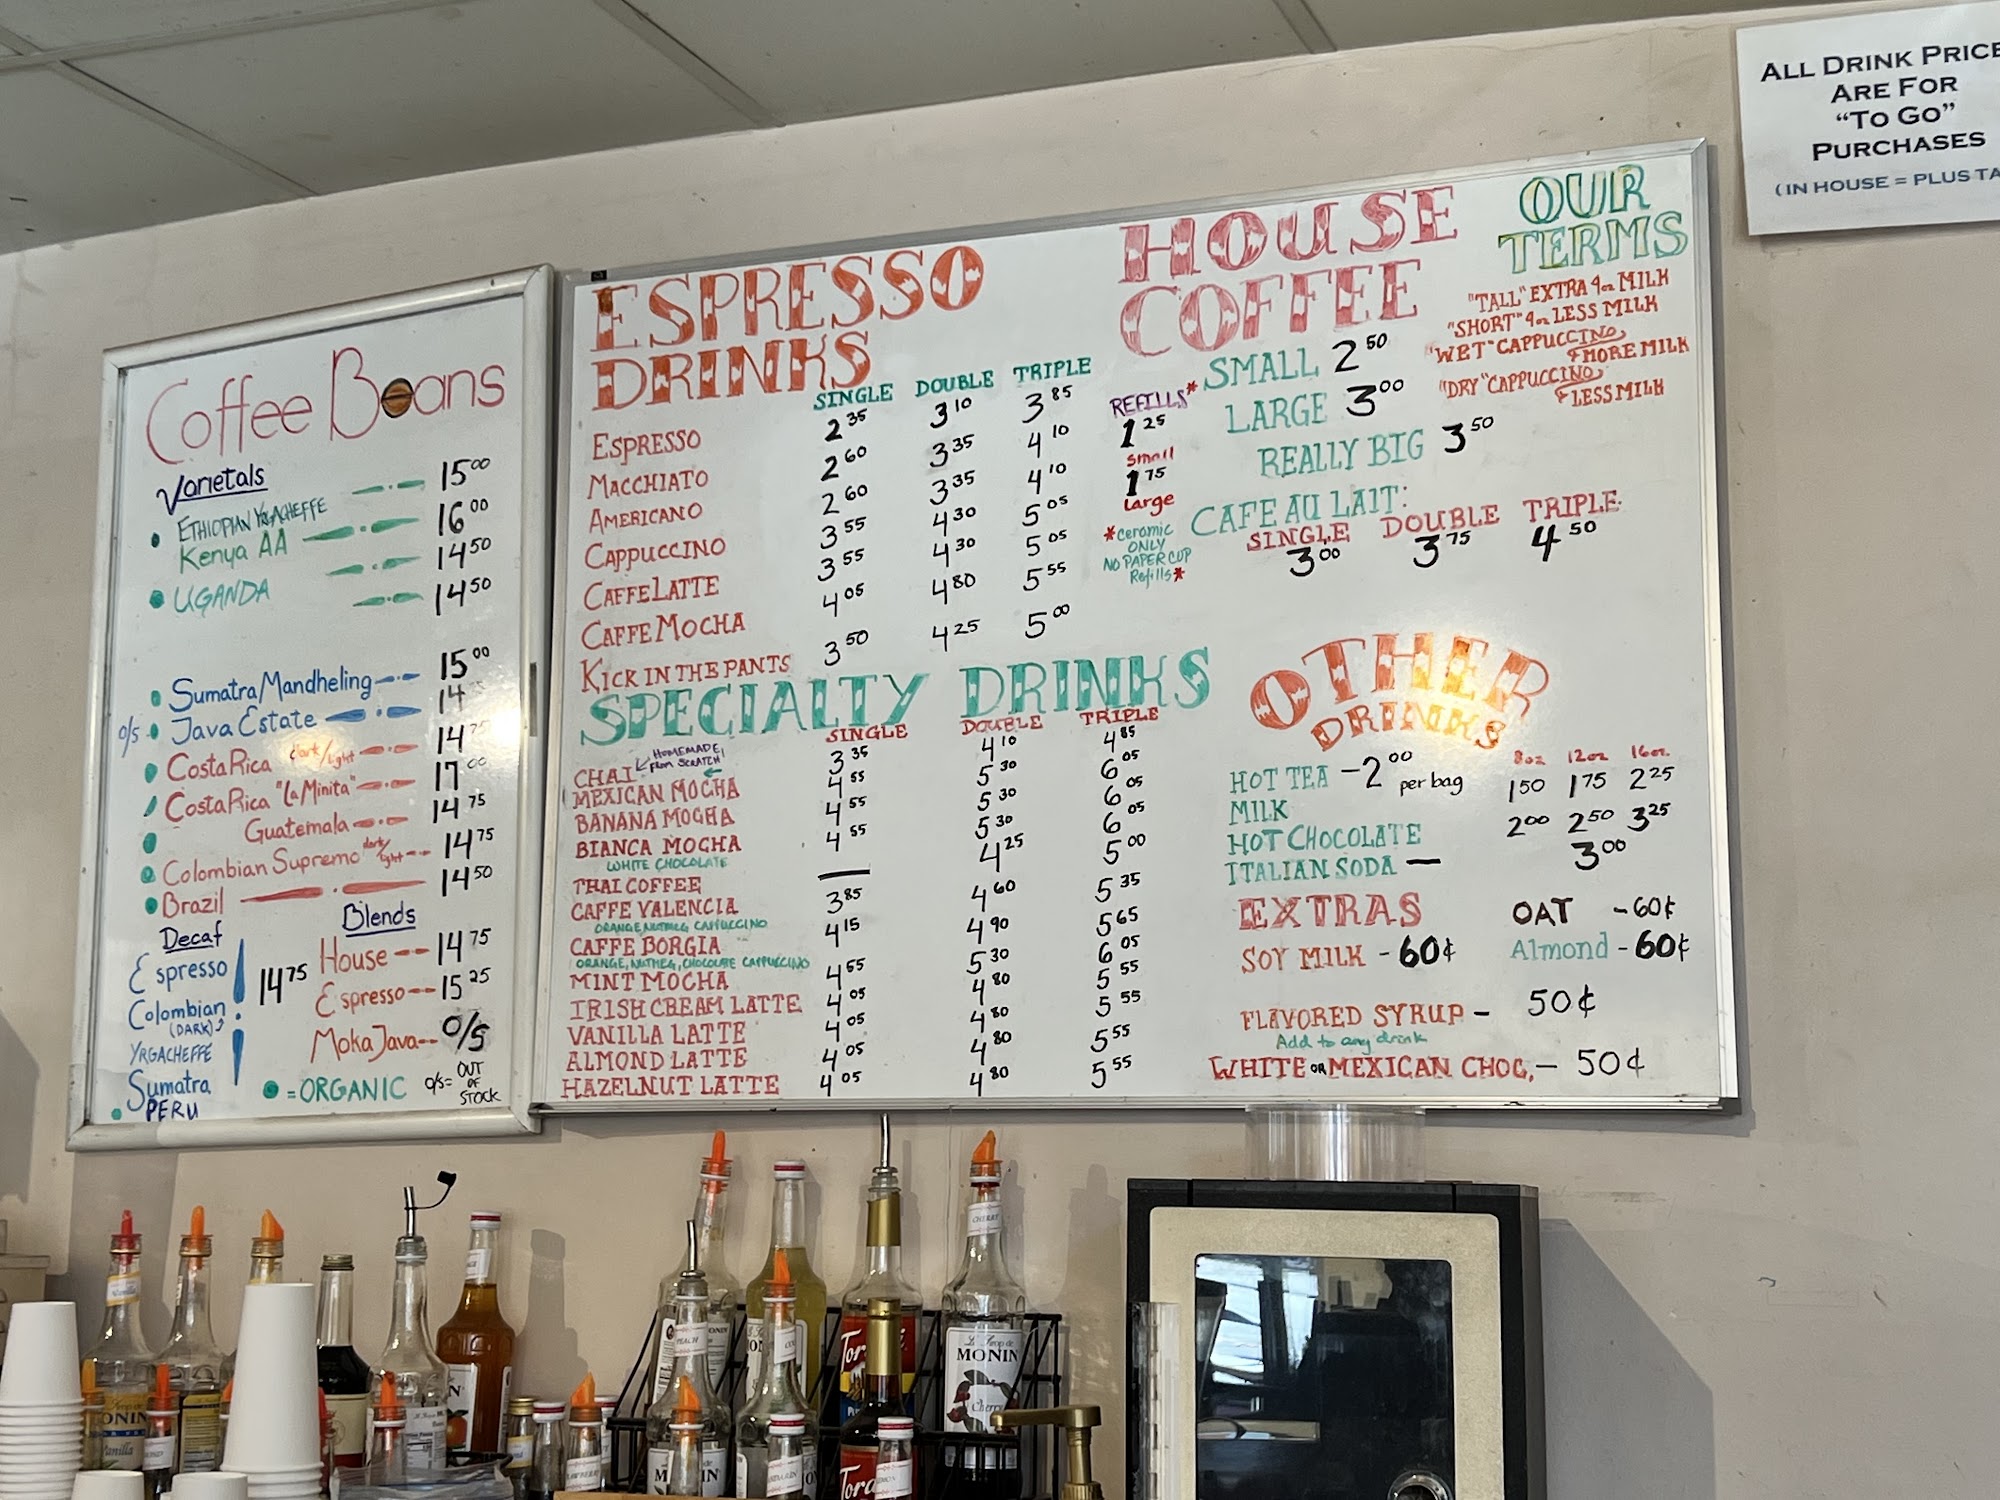 Coffee Beans
Varietals
ETHIOPIAN YRGACHEFFE 15.00
Kenya AA 16.00
14.50
UGANDA 14.50
Sumatra Mandheling 15.00
o/s Java Estate 14
Costa Rica dark/light 14.75
Costa Rica "La Minita" 17.00
Guatemala 14.75
Colombian Supremo dark/light 14.75
Brazil 14.50
Decaf
Espresso
Colombian
(DARK)
YRGACHEFFE
Sumatra
PERU
14.75
Blends
House 14.75
Espresso 15.25
Moka Java O/S
= ORGANIC
o/s = OUT OF STOCK
ESPRESSO
DRINKS
SINGLE DOUBLE TRIPLE
ESPRESSO 2.35 3.10 3.85
MACCHIATO 2.60 3.35 4.10
AMERICANO 2.60 3.35 4.10
CAPPUCCINO 3.55 4.30 5.05
CAFFE LATTE 3.55 4.30 5.05
CAFFE MOCHA 4.05 4.80 5.55
KICK IN THE PANTS 3.50 4.25 5.00
SPECIALTY DRINKS
SINGLE DOUBLE TRIPLE
CHAI HOMEMADE FROM SCRATCH! 3.35 4.10 4.85
MEXICAN MOCHA 4.55 5.30 6.05
BANANA MOCHA 4.55 5.30 6.05
BIANCA MOCHA 4.55 5.30 6.05
WHITE CHOCOLATE
THAI COFFEE — 4.25 5.00
CAFFE VALENCIA 3.85 4.60 5.35
ORANGE, NUTMEG CAPPUCCINO
CAFFE BORGIA 4.15 4.90 5.65
ORANGE, NUTMEG, CHOCOLATE CAPPUCCINO
MINT MOCHA 4.55 5.30 6.05
IRISH CREAM LATTE 4.05 4.80 5.55
VANILLA LATTE 4.05 4.80 5.55
ALMOND LATTE 4.05 4.80 5.55
HAZELNUT LATTE 4.05 4.80 5.55
HOUSE
COFFEE
SMALL 2.50
LARGE 3.00
REALLY BIG 3.50
REFILLS*
1.25
small
1.75
large
*ceramic
ONLY
NO PAPER CUP
Refills*
CAFE AU LAIT:
SINGLE DOUBLE TRIPLE
3.00 3.75 4.50
OUR
TERMS
"TALL" EXTRA 4oz MILK
"SHORT" 4oz LESS MILK
"WET" CAPPUCCINO
MORE MILK
"DRY" CAPPUCCINO
LESS MILK
OTHER
DRINKS
HOT TEA - 2.00 per bag
8oz 12oz 16oz
MILK 1.50 1.75 2.25
HOT CHOCOLATE 2.00 2.50 3.25
ITALIAN SODA — 3.00
EXTRAS
OAT - 60¢
SOY MILK - 60¢
Almond - 60¢
FLAVORED SYRUP - 50¢
Add to any drink
WHITE OR MEXICAN CHOC. - 50¢
ALL DRINK PRICE
ARE FOR
"TO GO"
PURCHASES
(IN HOUSE = PLUS TA
CHERRY
MONIN
Cherry
PEACH
MONIN
Vanilla
MONIN